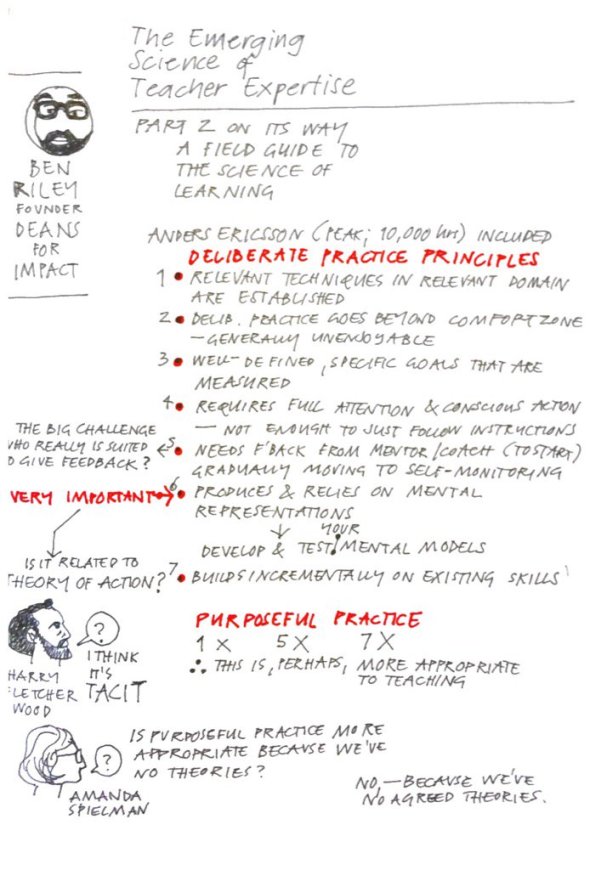 The Emerging
Science of
Teacher Expertise
BEN
RILEY
FOUNDER
DEANS
FOR
IMPACT
PART 2 ON ITS WAY
A FIELD GUIDE TO
THE SCIENCE OF
LEARNING
ANDERS ERICSSON (PEAK; 10,000 hrs) INCLUDED
DELIBERATE PRACTICE PRINCIPLES
1 • RELEVANT TECHNIQUES IN RELEVANT DOMAIN
ARE ESTABLISHED
2 • DELIB. PRACTICE GOES BEYOND COMFORT ZONE
— GENERALLY UNENJOYABLE
3 • WELL-DEFINED, SPECIFIC GOALS THAT ARE
MEASURED
4 • REQUIRES FULL ATTENTION & CONSCIOUS ACTION
— NOT ENOUGH TO JUST FOLLOW INSTRUCTIONS
5 • NEEDS F'BACK FROM MENTOR/COACH (TO START)
GRADUALLY MOVING TO SELF-MONITORING
THE BIG CHALLENGE
WHO REALLY IS SUITED
O GIVE FEEDBACK?
VERY IMPORTANT
6 • PRODUCES & RELIES ON MENTAL
REPRESENTATIONS
YOUR
DEVELOP & TEST MENTAL MODELS
IS IT RELATED TO
THEORY OF ACTION?
7 • BUILDS INCREMENTALLY ON EXISTING SKILLS
PURPOSEFUL PRACTICE
1 X 5 X 7 X
∴ THIS IS, PERHAPS, MORE APPROPRIATE
TO TEACHING
?
I THINK
IT'S
TACIT
HARRY
FLETCHER
WOOD
IS PURPOSEFUL PRACTICE MORE
APPROPRIATE BECAUSE WE'VE
NO THEORIES?
?
AMANDA
SPIELMAN
NO, — BECAUSE WE'VE
NO AGREED THEORIES.